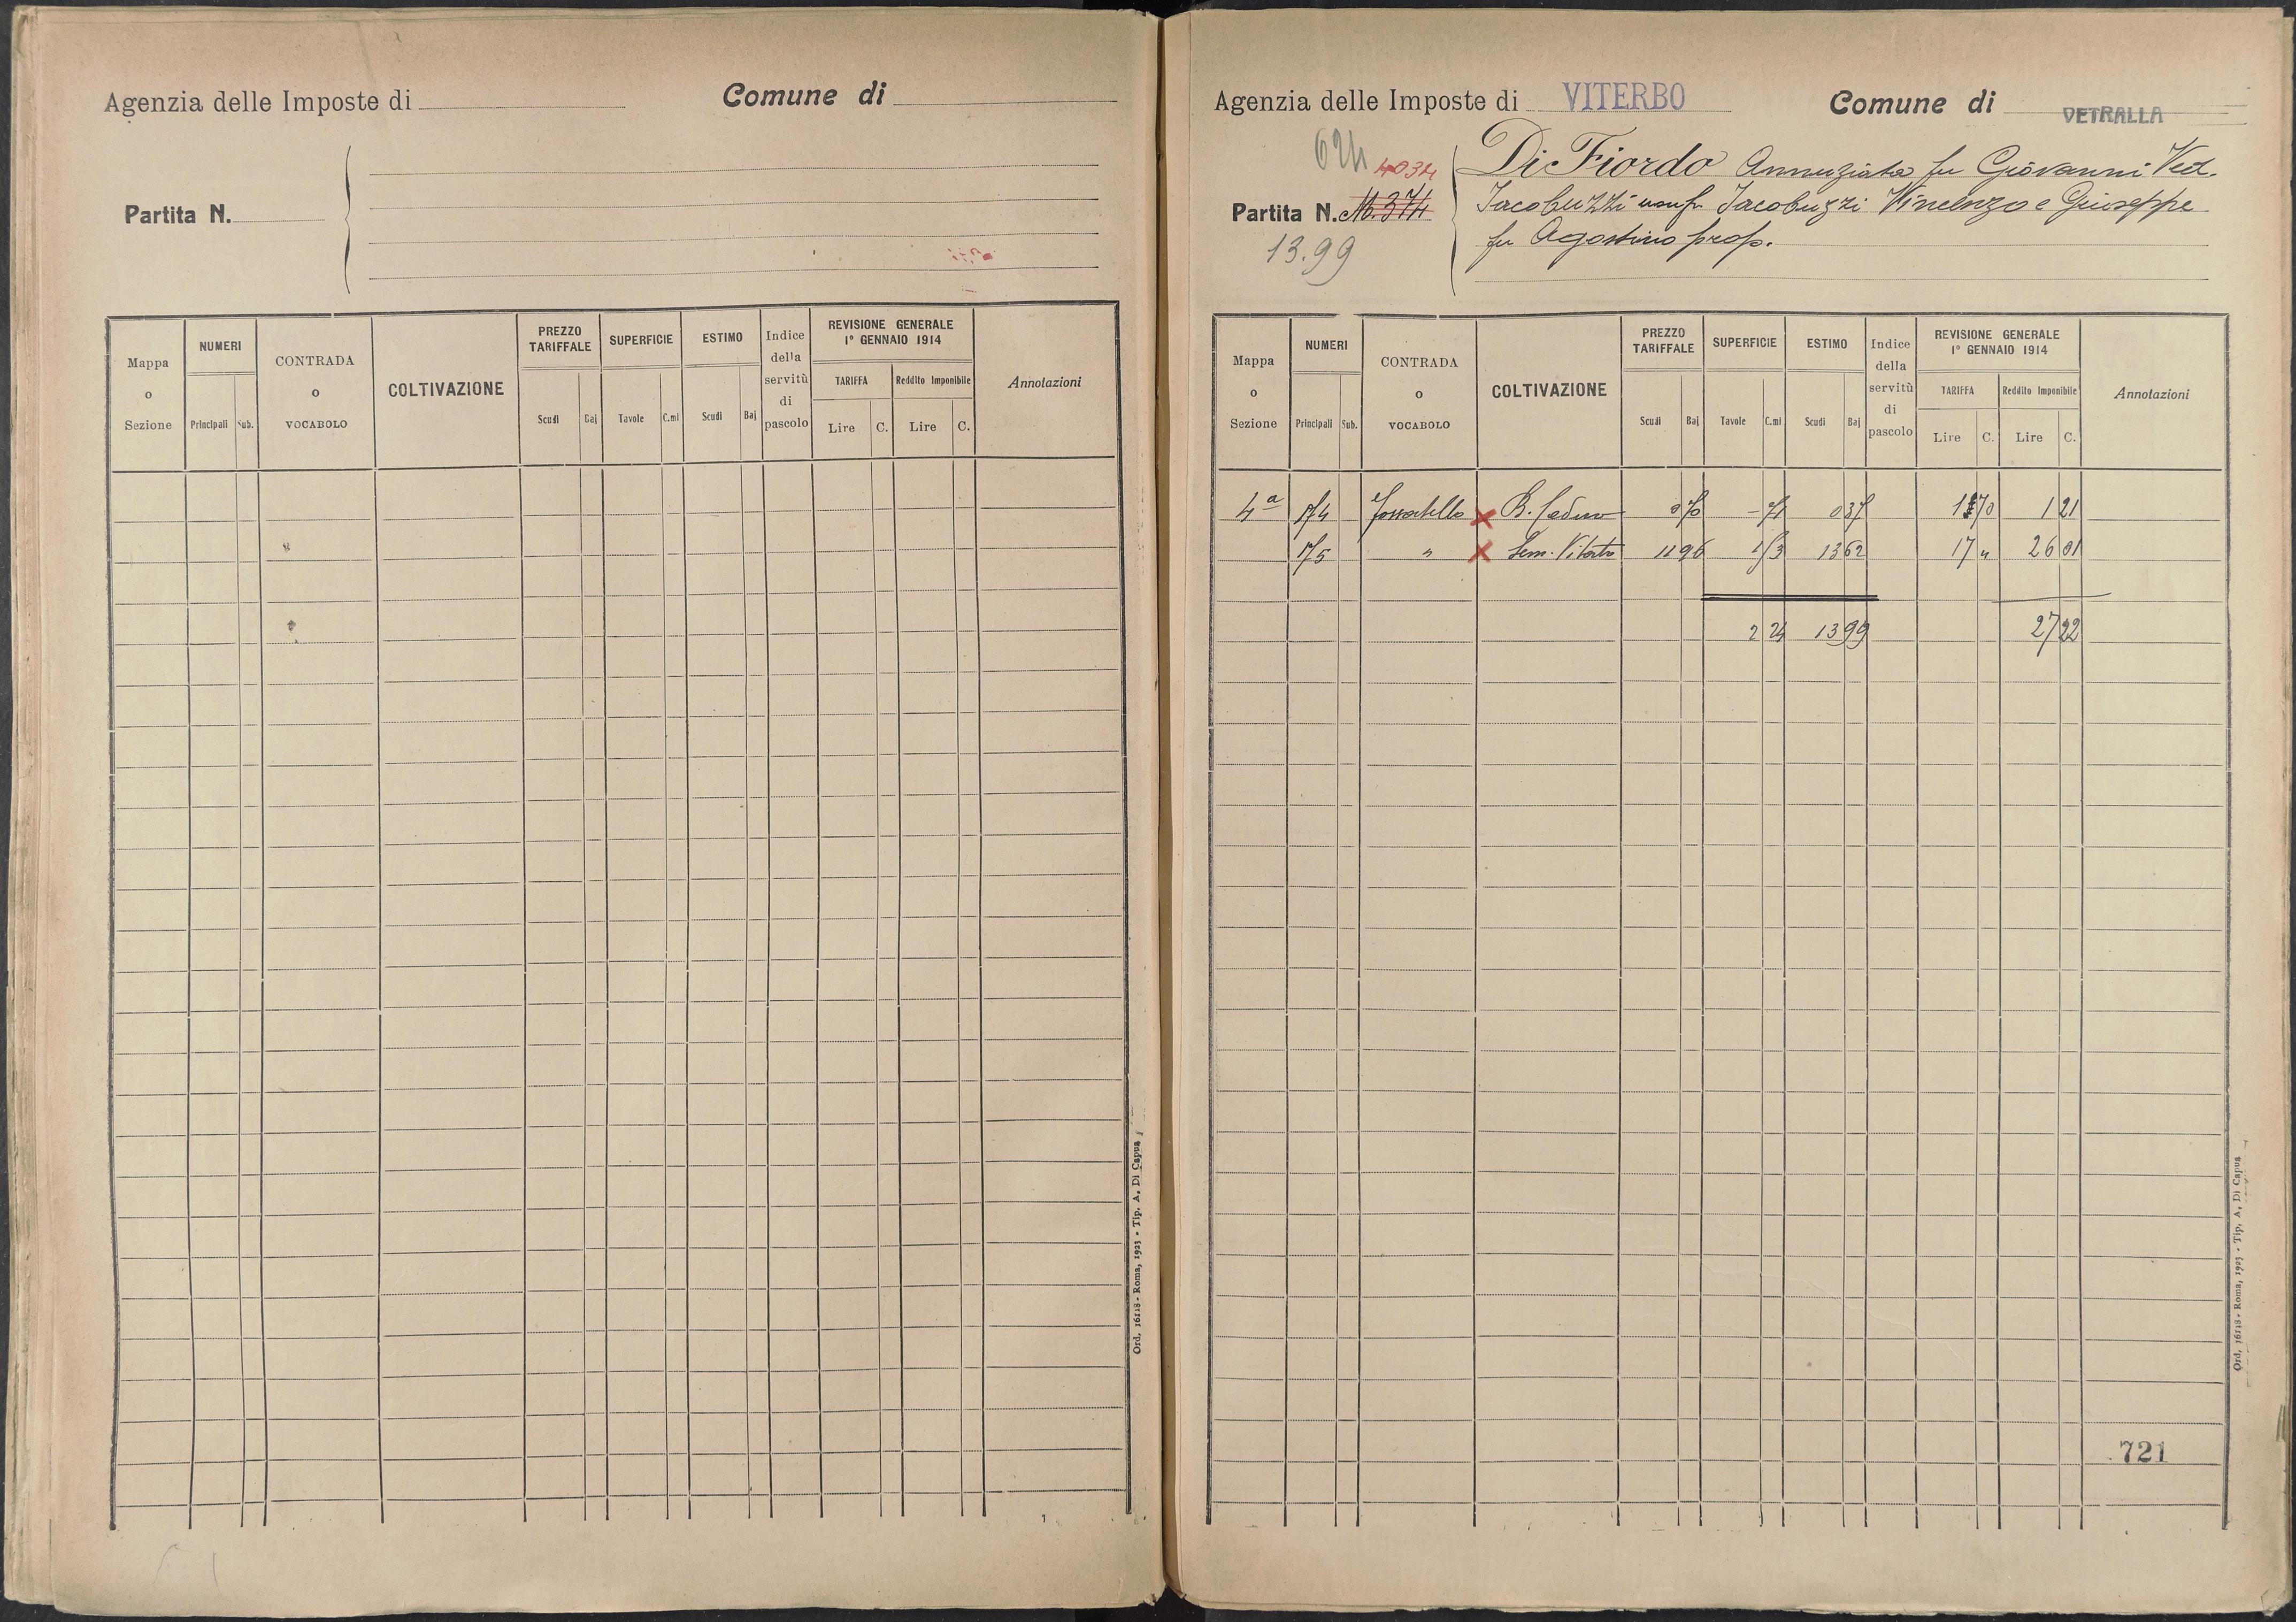 Agenzia delle Imposte di
Comune di
Partita N.
Mappa o Sezione
NUMERI
Principali
Sub.
CONTRADA o VOCABOLO
COLTIVAZIONE
PREZZO TARIFFALE
Scudi
Baj
SUPERFICIE
Tavole
C.mi
ESTIMO
Scudi
Baj
Indice della servitù di pascolo
REVISIONE GENERALE
1° GENNAIO 1914
TARIFFA
Lire
C.
Reddito Imponibile
Lire
C.
Annotazioni
Ord. 16118 - Roma, 1923 - Tip. A. Di Capua
Agenzia delle Imposte di VITERBO
Comune di VETRALLA
624
4034
Partita N.
13.99
Di Fiordo Annunziata fu Giovanni Ved.
Jacobuzzi usuf. Jacobuzzi Vincenzo e Giuseppe
fu Agostino prop.
Mappa o Sezione
NUMERI
Principali
Sub.
CONTRADA o VOCABOLO
COLTIVAZIONE
PREZZO TARIFFALE
Scudi
Baj
SUPERFICIE
Tavole
C.mi
ESTIMO
Scudi
Baj
Indice della servitù di pascolo
REVISIONE GENERALE
1° GENNAIO 1914
TARIFFA
Lire
C.
Reddito Imponibile
Lire
C.
Annotazioni
4ª 174 Fossatello B. Ceduo - 71 0 37 1 70 1 21
175 " Sem. Vitato 1 53 13 62 17 " 26 01
2 24 13 99 27 22
721
Ord. 16118 - Roma, 1923 - Tip. A. Di Capua